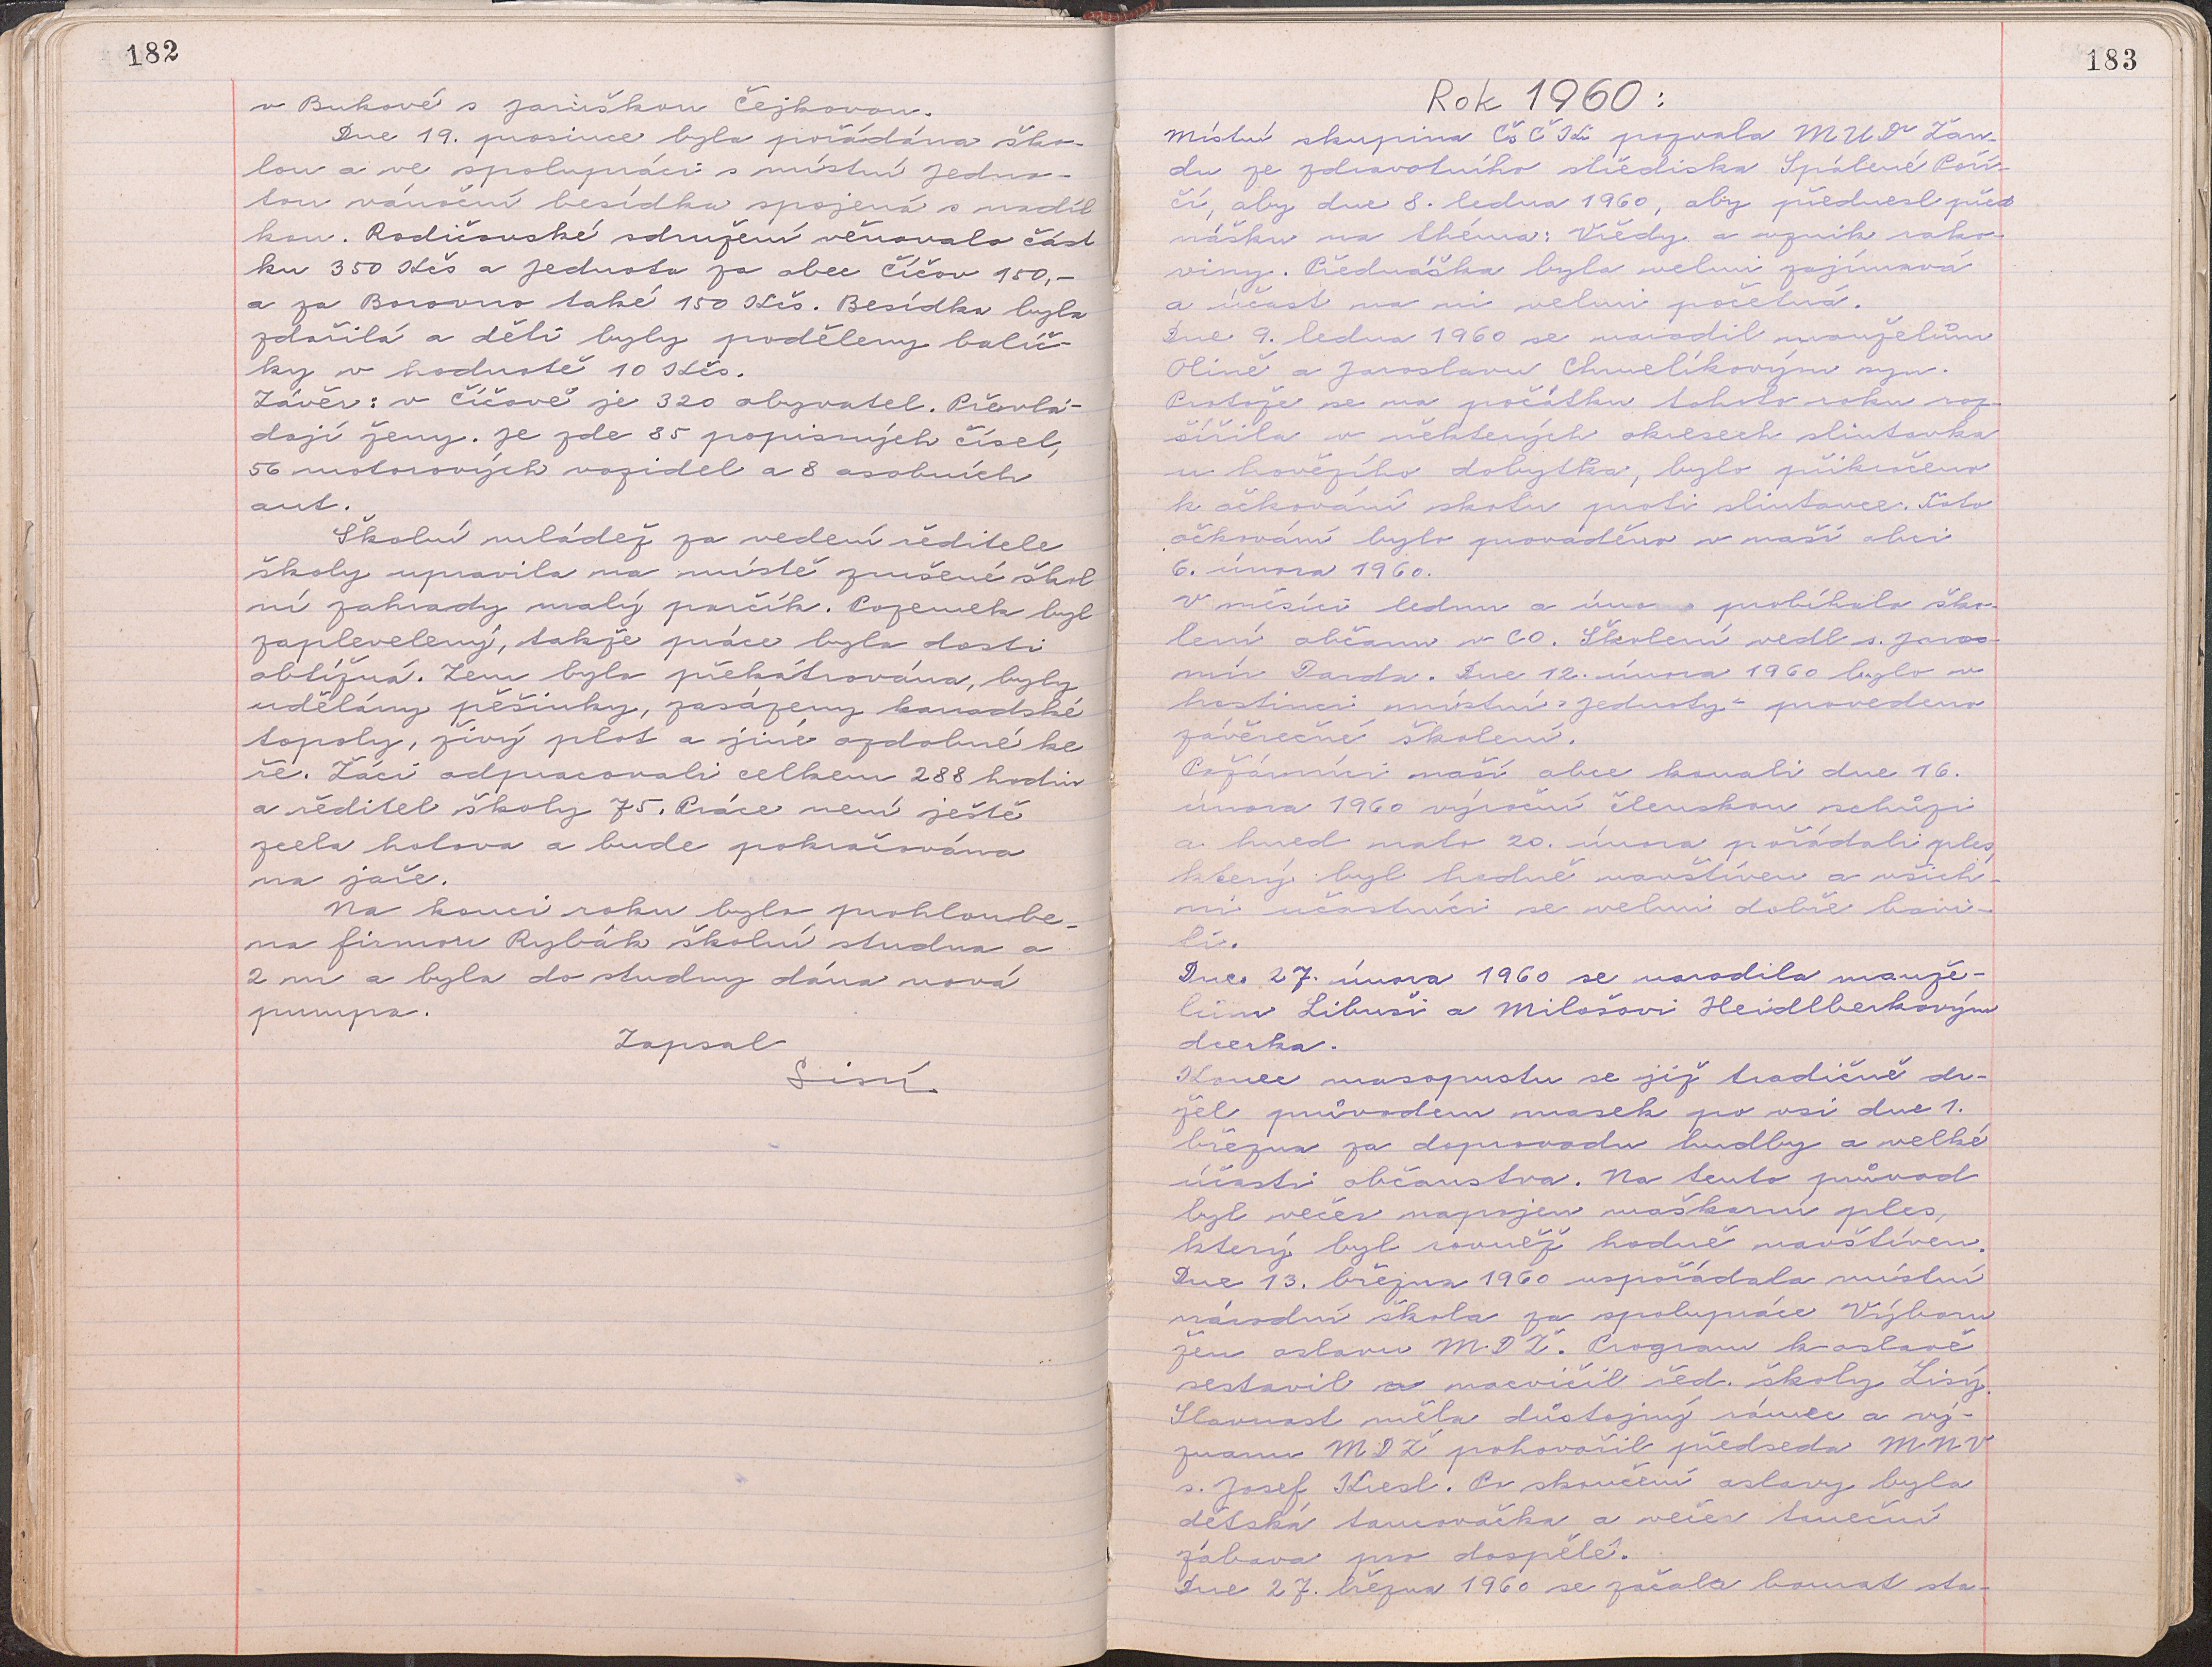 182
v Bukové s Jaruškou Čejkovou.
Dne 19. prosince byla pořádána ško-
lou a ve spolupráci s místní Jedno-
tou vánoční besídka spojená s nadíl
kou. Rodičovské sdružení věnovalo část
ku 350 Kčs a Jednota za obec Číčov 150,-
a za Borovno také 150 Kčs. Besídka byla
zdařilá a děti byly poděleny balíč-
ky v hodnotě 10 Kčs.
Závěr: v Číčově je 320 obyvatel. Převlá-
dají ženy. Je zde 85 popisných čísel,
56 motorových vozidel a 8 osobních
aut.
Školní mládež za vedení ředitele
školy upravila na místě zrušené škol
ní zahrady malý parčík. Pozemek byl
zaplevelený, takže práce byla dosti
obtížná. Zem byla překátrována, byly
udělány pěšinky, zasázeny kanadské
topoly, živý plot a jiné ozdobné ke
ře. Žáci odpracovali celkem 288 hodin
a ředitel školy 75. Práce není ještě
zcela hotova a bude pokračována
na jaře.
Na konci roku byla prohloube-
na firmou Rybák školní studna o
2 m a byla do studny dána nová
pumpa.
Zapsal
Lisý.
183
Rok 1960:
Místní skupina ČsČK pozvala MUDr Žan-
du ze zdravotního střediska Spálené Poří-
čí, aby dne 8. ledna 1960, aby přednesl před
nášku na théma: Vředy a vznik rako-
viny. Přednáška byla velmi zajímavá
a účast na ni velmi početná.
Dne 9. ledna 1960 se narodil manželům
Olině a Jaroslavu Chmelíkovým syn.
Protože se na počátku tohoto roku roz-
šířila v některých okresech slintavka
u hovězího dobytka, bylo přikročeno
k očkování skotu proti slintavce. Toto
očkování bylo prováděno v naší obci
6. února 1960.
V měsíci lednu a úno probíhalo ško-
lení občanů v CO. Školení vedl s. Jaro-
mír Darda. Dne 12. února 1960 bylo v
hostinci místní "Jednoty" provedeno
závěrečné školení.
Požárníci naší obce konali dne 16.
února 1960 výroční členskou schůzi
a hned nato 20. února pořádali ples,
který byl hodně navštíven a všich-
ni účastníci se velmi dobře bavi-
li.
Dne 27. února 1960 se narodila manže-
lům Libuši a Milošovi Heidlberkovým
dcerka.
Konec masopustu se již tradičně dr-
žel průvodem masek po vsi dne 1.
března za doprovodu hudby a velké
účasti občanstva. Na tento průvod
byl večer napojen maškarní ples,
který byl rovněž hodně navštíven.
Dne 13. března 1960 uspořádala místní
národní škola za spolupráce Výboru
žen oslavu MDŽ. Program k oslavě
sestavil a nacvičil řed. školy Lisý.
Slavnost měla důstojný rámec a vý-
znamu MDŽ pohovořil předseda MNV
s. Josef Kresl. Po skončení oslavy byla
dětská tancovačka a večer taneční
zábava pro dospělé.
Dne 27. března 1960 se začala bourat sta-